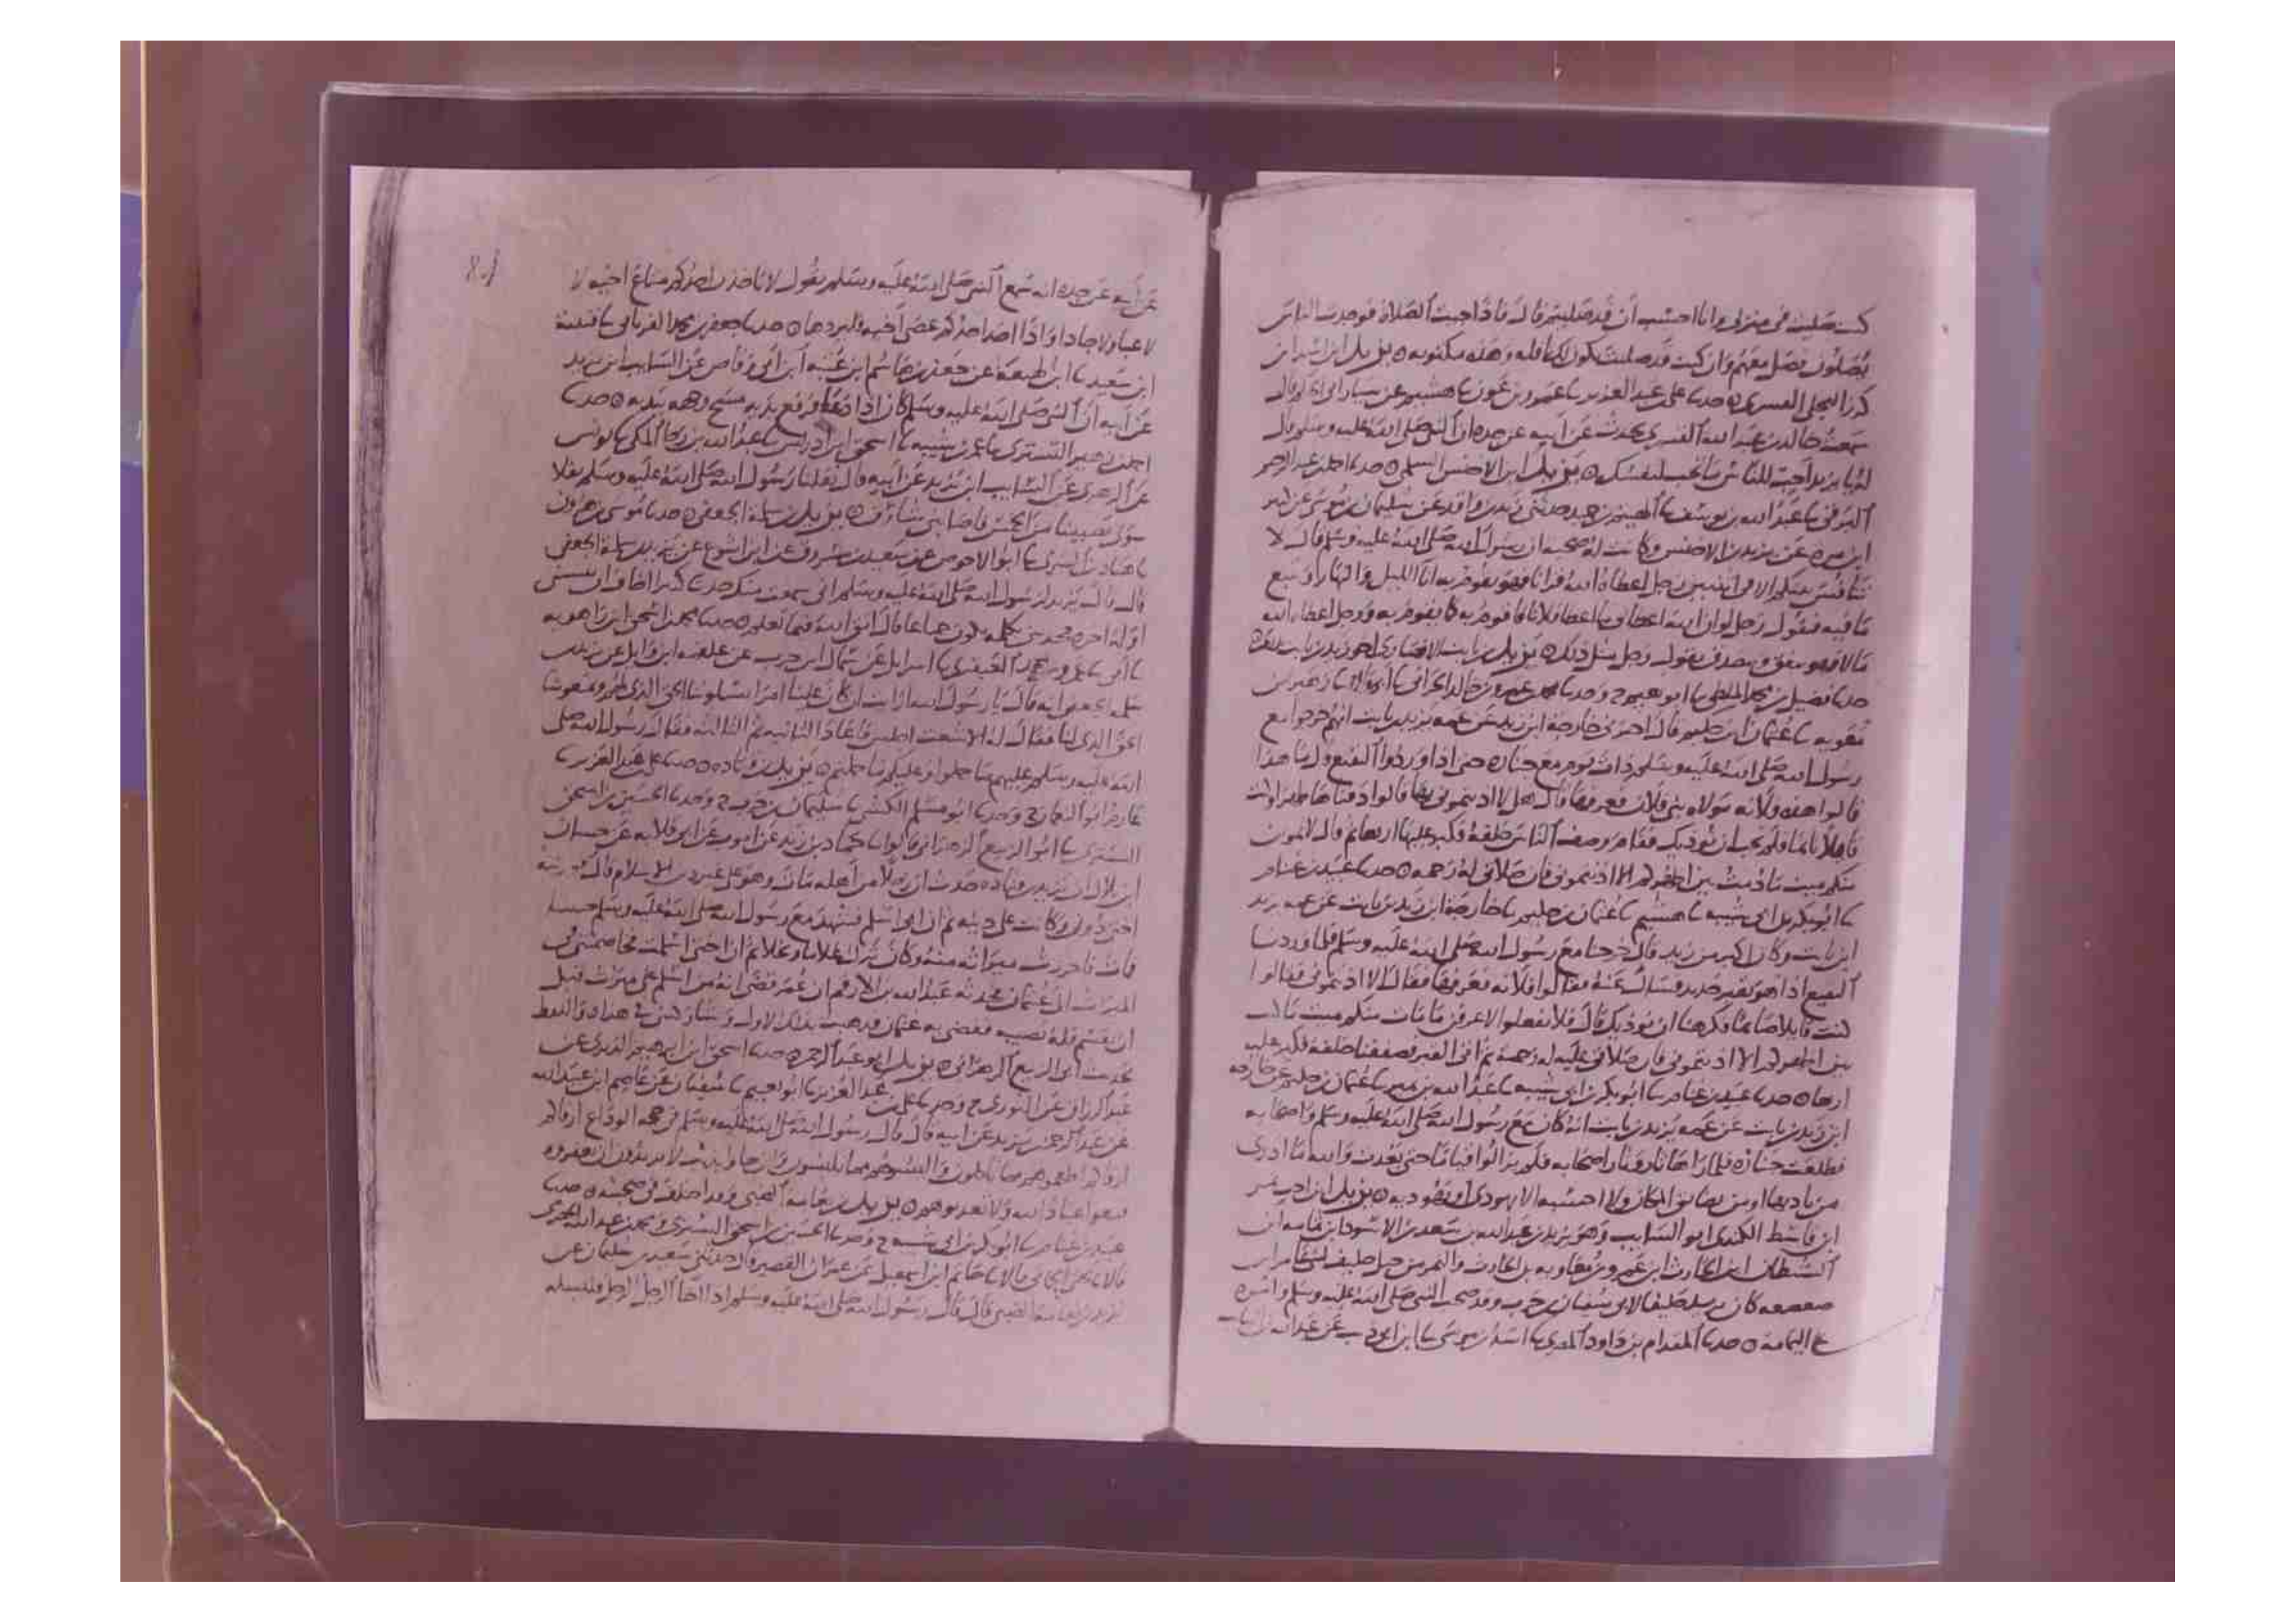 كنت صليت في منزلي وانا احسب أن قد صليتم قال فاذا جيت الصلاة فوجدت الناس
يصلون فصل معهم وان كنت قد صليت تكون لك نافله وهذه مكتوبه ٥ يزيد ابن اسد ابن
كرز البجلي القسري ٥ حدثنا علي بن عبد العزيز نا عمرو بن عون نا هشيم عن سيار ابي الحكم قال
سمعت خالد بن عبد الله القسري يحدث عن أبيه عن جده ان النبي صلى الله عليه وسلم قال
له يا يزيد احب للناس ما تحب لنفسك ٥ يزيد ابن الاخنس السلمي ٥ حدثنا احمد بن عبد الرحيم
البرقي نا عبد الله بن يوسف نا الهيثم بن حميد حدثني زيد بن واقد عن سليمان بن موسى عن كثير
ابن مره عن يزيد بن الاخنس وكانت له صحبه ان رسول الله صلى الله عليه وسلم قال لا
تنافس بينكم الا في اثنتين رجل اعطاه الله قرانا فهو يقوم به انا الليل والنهار ويتبع
ما فيه فيقول رجل لو ان الله اعطاني ما اعطا فلانا فاقوم به كما يقوم به ورجل اعطاه الله
مالا فهو ينفق ويتصدق فيقول رجل مثل ذلك ٥ يزيد بن ثابت الانصاري اخو زيد بن ثابت
حدثنا فضيل بن محمد الملطي نا ابو نعيم ح وحدثنا محمد بن عمرو بن خالد الحراني نا أبي قالا نا زهير بن
معويه نا عثمان ابن حكيم قال اخبرني خارجة ابن زيد عن عمه يزيد بن ثابت انهم خرجوا مع
رسول الله صلى الله عليه وسلم ذات يوم مع جنازه حتى اذا وردوا البقيع قال ما هذا
قالوا هذه فلانه مولاه بني فلان فعرفها قال هل لا اذنتموني بها قالوا دفناها ظهرا وكنت
قايلا نايما فلم نحب ان نوذيك فقام وصف الناس خلفه فكبر عليها اربعا ثم قال لا يموت
منكم ميت ما دمت بين اظهركم الا اذنتموني فان صلاتي له رحمه ٥ حدثنا عبيد بن غنام
نا ابو بكر بن ابي شيبه نا هشيم نا عثمان بن حكيم نا خارجة ابن زيد بن ثابت عن عمه يزيد
ابن ثابت وكان اكبر من زيد قال خرجنا مع رسول الله صلى الله عليه وسلم فلما وردنا
البقيع اذا هو بقبر جديد فسال عنه فقالوا فلانه فعرفها فقال الا اذنتموني فقالوا
كنت قايلا صايما فكرهنا ان نوذيك قال فلا تفعلوا لا اعرفن ما مات منكم ميت ما كنت
بين اظهركم الا اذنتموني فان صلاتي عليه له رحمة ثم اتى القبر فصففنا خلفه فكبر عليه
اربعا ٥ حدثنا عبيد بن غنام نا ابو بكر بن ابي شيبه نا عبد الله بن نمير نا عثمان بن حكيم عن خارجه
ابن زيد بن ثابت عن عمه يزيد بن ثابت انه كان مع رسول الله صلى الله عليه وسلم واصحابه
فطلعت جنازه فلما راها ثار وثار اصحابه فلم يزالوا قياما حتى بعدت والله ما ادري
من تاذيها او من تضايق المكان ولا احسبه الا يهودي او يهوديه ٥ يزيد
ابن اخت نمر الكندي ابو السايب وهو يزيد بن عبد الله بن سعد بن الاسود بن ثمامه ابن
الشيطان ابن الحارث ابن عمرو بن معاويه بن الحارث والنمر من حليف
صعصعه كان حليفا لابي سفيان بن حرب وقد صحب النبي صلى الله عليه وسلم وامره
على اليمامه ٥ حدثنا المقدام بن داود المصري نا اسد بن موسى نا ابن ابي ذيب عن عبد الله بن السايب
عن أبيه عن جده انه سمع النبي صلى الله عليه وسلم يقول لا ياخذن احدكم متاع اخيه لا
لاعبا ولا جادا واذا اخذ احدكم عصى أخيه فليردها ٥ حدثنا جعفر بن محمد الفريابي نا قتيبة
ابن سعيد نا ابن لهيعة عن حفص بن هاشم ابن عتبه ابن أبي وقاص عن السايب ابن يزيد
عن أبيه ان النبي صلى الله عليه وسلم كان اذا دعا فرفع يديه مسح وجهه بيديه ٥ حدثنا
احمد بن زهير التستري نا عمر بن شيبه نا اسحق ابن ادريس نا عبد الله بن رجا المكي نا يونس
عن الزهري عن السايب ابن يزيد عن أبيه قال نفلنا رسول الله صلى الله عليه وسلم نفلا
سوى نصيبنا من الخمس فاصابني شارف ٥ يزيد بن سلمة الجعفي ٥ حدثنا موسى بن هرون
نا هناد بن السري نا ابو الاحوص عن سعيد بن مسروق عن ابن اشوع عن يزيد بن سلمة الجعفي
قال قال يزيد يا رسول الله صلى الله عليه وسلم اني سمعت منك حديثا كثيرا اخاف ان ينسيني
اوله اخره فحدثني بكلمه تكون جماعا قال اتق الله فيما تعلم ٥ حدثنا محمد بن اسحق ابن راهويه
نا أبي نا عمرو بن محمد العنقزي نا اسرايل عن سماك ابن حرب عن علقمه ابن وايل عن يزيد بن
سلمه الجعفي انه قال يا رسول الله ارايت ان كان علينا امرا يسلونا الحق الذي لهم ويمنعونا
الحق الذي لنا فقال له الاشعث اجلس فاعاد الثانيه ثم الثالثه فقال رسول الله صلى
الله عليه وسلم عليهم ما حملوا وعليكم ما حملتم ٥ يزيد بن قتاده ٥ حدثنا علي بن عبد العزيز نا
عارم ابو النعمان ح وحدثنا ابو مسلم الكشي نا سليمان بن حرب ح وحدثنا الحسين بن اسحق
التستري نا ابو الربيع الزهراني قالوا نا حماد بن زيد عن ايوب عن ابي قلابه عن حسان
ابن بلال ان يزيد بن قتاده حدث ان رجلا من أهله مات وهو على غير دين الاسلام قال فورثته
اختي دوني وكانت على دينه ثم ان ابي اسلم فشهد مع رسول الله صلى الله عليه وسلم حنينا
فمات فاحرزت ميراثه منه وكان ترك غلاما ونخلا ثم ان اختي اسلمت فخاصمتني في
الميراث الى عثمان فحدثه عبد الله بن الارقم ان عمر قضى انه من اسلم على ميراث قبل
ان يقسم فله نصيبه فقضى به عثمان فذهبت بذاك الاول وشاركتني في هذا واللفظ
لحديث ابي الربيع الزهراني ٥ يزيد ابو عبد الرحمن ٥ حدثنا اسحق ابن ابراهيم الدبري عن
عبد الرزاق عن الثوري ح وحدثنا علي بن عبد العزيز نا ابو نعيم نا سفيان عن عاصم ابن عبيد الله
عن عبد الرحمن بن يزيد عن أبيه قال قال رسول الله صلى الله عليه وسلم في حجه الوداع ارقاكم
ارقاكم اطعموهم مما تاكلون والبسوهم مما تلبسون وان جاوا بذنب لا تريدون ان تغفروه
فبيعوا عباد الله ولا تعذبوهم ٥ يزيد بن نعامه الضبي وقد اختلف في صحبته ٥ حدثنا
عبيد بن غنام نا ابو بكر بن ابي شيبه ح وحدثنا الحسين بن اسحق التستري ومحمد بن عبد الله الحضرمي
قالا نا يحيى الحماني قالا نا حاتم ابن اسمعيل عن عمران القصير قال حدثني سعيد بن سلمان عن
يزيد بن نعامه الضبي قال قال رسول الله صلى الله عليه وسلم اذا اخا الرجل الرجل فليسله